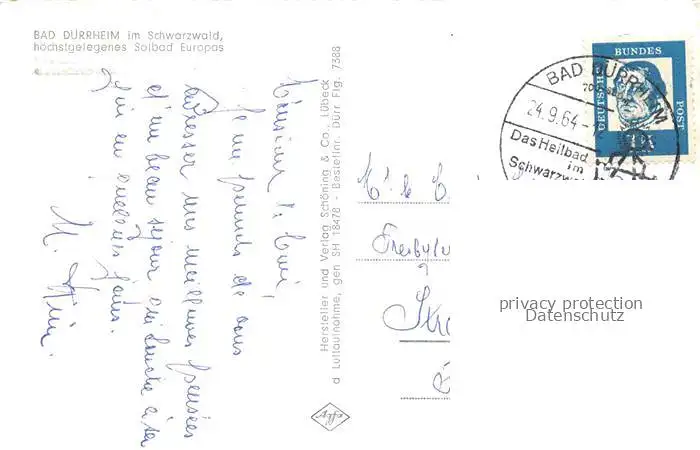 BAD DÜRRHEIM im Schwarzwald,
höchstgelegenes Solbad Europas
Monsieur le Curé,
Je me permets de vous
adresser mes meilleures pensées
d'un beau séjour qui touche à sa
fin en quelques jours.
Hersteller und Verlag Schöning & Co., Lübeck
a Luftaufnahme, gen SH 18478 - Bestellnr. Dürr Flg. 7388
Agfa
DEUTSCHE
BUNDES
POST
BAD DÜRRHEIM
24.9.64
Das Heilbad
im
Schwarzw
M. le C
privacy protection
Datenschutz